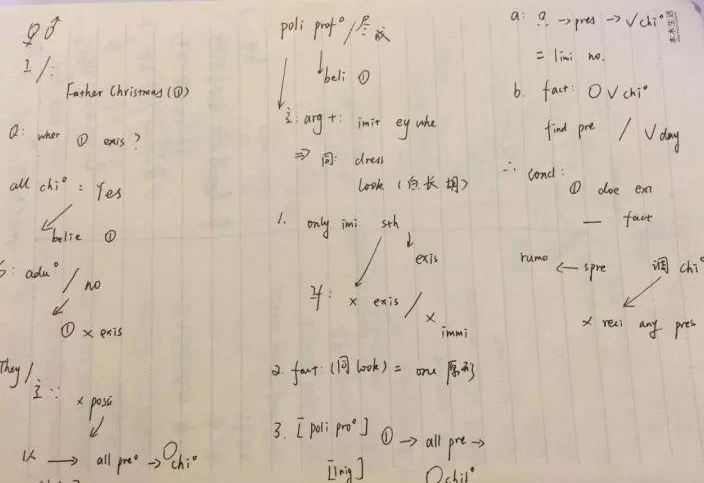 ♀ ♂
主/:
Father Christmas (①)
Q: wher ① exis ?
all chi° : Yes
↙
belie ①
S: adu° / no
↙
① x exis
They/
主: x possi
↙
1人 → all pre° → ○chi°
poli prof° /
↓ beli ①
主: arg +: imit ey whe
⇒ 同: dress
look (白长胡)
1. only imi sth
↓
exis
x exis / x immi
2. fact: (同 look) = one 原形
3. [poli pro°] ① → all pre →
○chil°
a: → pres → √chi°
= limi no.
b. fact: ○ √ chi°
find pre / √ day
∴ concl:
① doe exi
— fact
rumo ← spre 调 chi°
↙
x reci any pres
本木生活